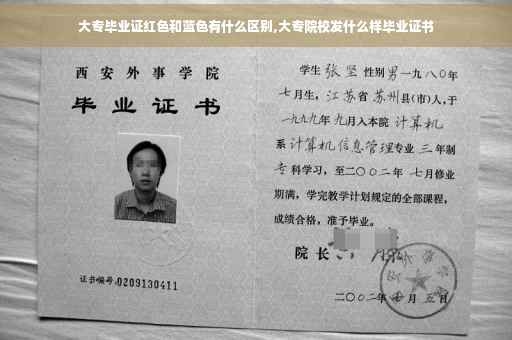 大专毕业证红色和蓝色有什么区别,大专院校发什么样毕业证书
西安外事学院
毕业证书
证书编号:0209130411
学生 张坚 性别男一九八〇年
七月生，江苏省 苏州县(市)人,于
一九九九年 九月入本院 计算机
系 计算机信息管理专业 三 年制
专 科学习，至二〇〇二年 七月修业
期满，学完教学计划规定的全部课程，
成绩合格，准予毕业。
院 长
二〇〇二年 月 五 日